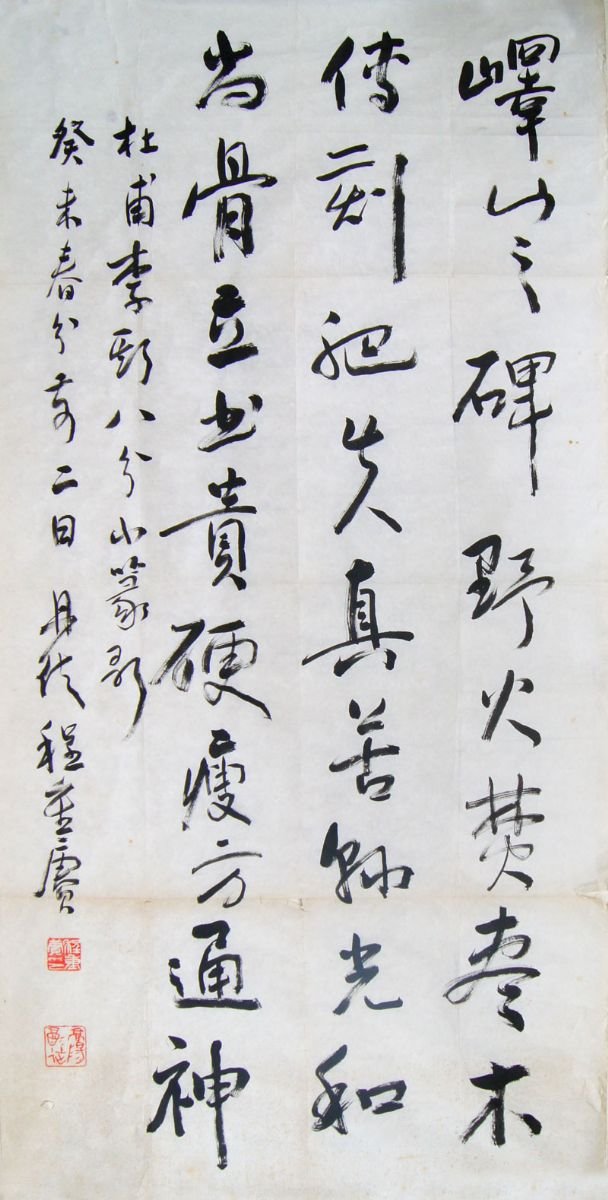 嶧山之碑野火焚枣木
傳刻肥失真苦縣光和
尚骨立书貴硬瘦方通神
杜甫李潮八分小篆歌
癸未春分前二日丹徒程重